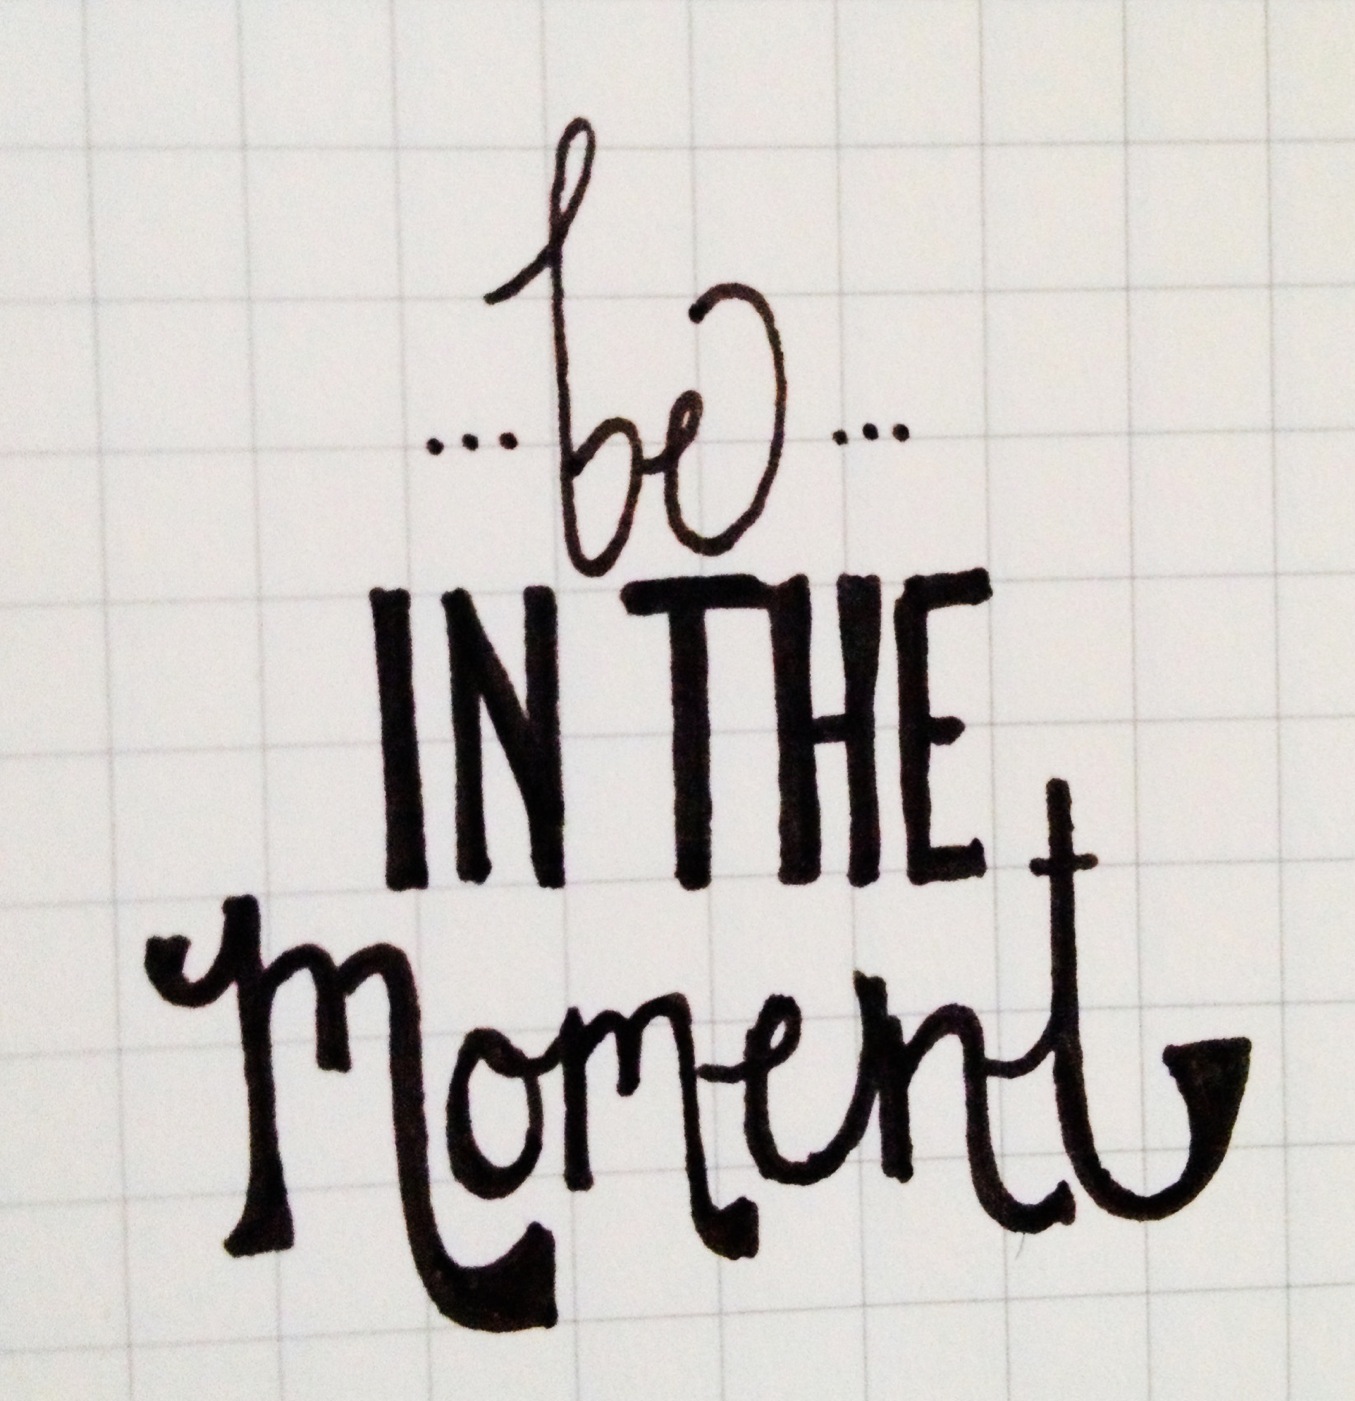 ...be...
IN THE
Moment